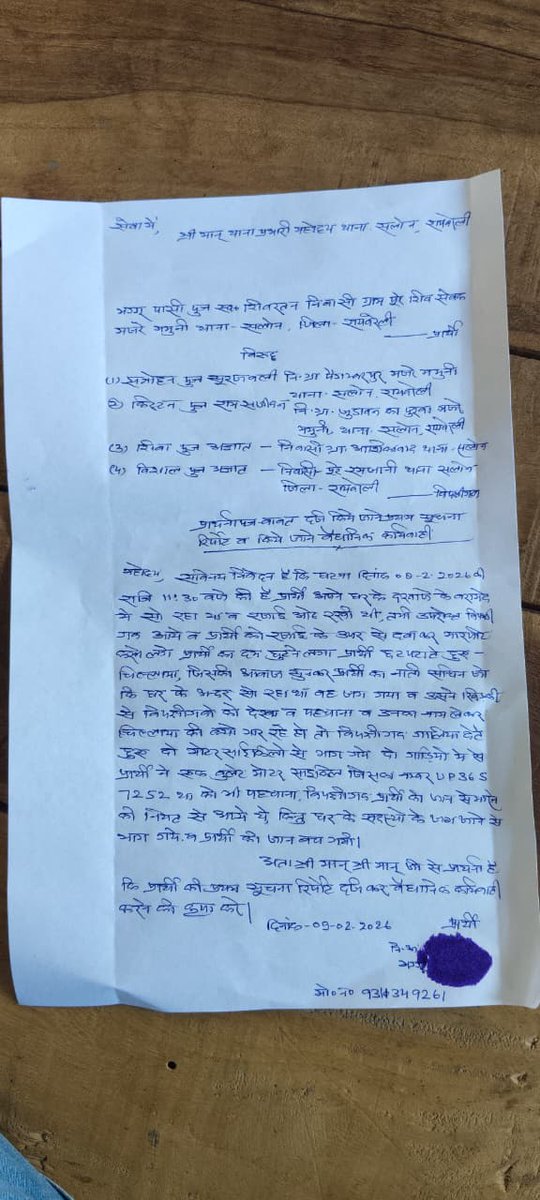 सेवा में,
श्री मान् थाना प्रभारी महोदय थाना सलोन, रायबरेली
भग्गू पासी पुत्र स्व० शिवरतन निवासी ग्राम पूरे शिव सेवक
मजरे ममुनी थाना-सलोन, जिला-रायबरेली
—— प्रार्थी
विरुद्ध
(1) पुत्र सूरजबली नि.ग्रा मजरे ममुनी
थाना-सलोन, रायबरेली
2) पुत्र राम सजीवन नि.ग्रा. जुड़ावन का पुरवा मजरे
ममुनी, थाना-सलोन, रायबरेली
(3) शिवा पुत्र अज्ञात – निवासी ग्रा. थाना-सलोन
(4) विशाल पुत्र अज्ञात – निवासी पूरे रमजानी थाना सलोन
जिला-रायबरेली —— विपक्षीगण
प्रार्थनापत्र बावत दर्ज किये जाने प्रथम सूचना
रिपोर्ट व किये जाने वैधानिक कार्यवाही
महोदय, सविनय निवेदन है कि घटना दिनांक 2.2026 की
रात्रि 11:30 बजे की है प्रार्थी अपने घर के दरवाजे के बरामदे
में सो रहा था व रजाई ओढ़ रखी थी, तभी उपरोक्त विपक्षी
गण आये व प्रार्थी को रजाई के ऊपर से दबाकर मारपीट
करने लगे प्रार्थी का दम घुटने लगा प्रार्थी छटपटाते हुए-
चिल्लाया, जिसकी आवाज सुनकर प्रार्थी का नाती सचिन जो
कि घर के अन्दर सो रहा था वह जग गया व उसने खिड़की
से विपक्षीगणों को देखा व पहचाना व उनका नाम लेकर
चिल्लाया की क्यों मार रहे हो तो विपक्षीगण गालियां देते
हुए दो मोटर साइकिलों से भाग गये दो गाड़ियों में से
प्रार्थी ने एक बुलेट मोटर साइकिल जिसका नम्बर UP36S
7252 था को भी पहचाना, विपक्षीगण प्रार्थी को जान से मारने
की नियत से आये थे किन्तु घर के सदस्यों के जग जाने से
भाग गये व प्रार्थी की जान बच गयी।
अतः श्री मान् श्री मान् जी से प्रार्थना है
कि प्रार्थी की प्रथम सूचना रिपोर्ट दर्ज कर वैधानिक कार्यवाही
करने की कृपा करें।
दिनांक-09-02-2026 प्रार्थी
नि.अं.
भग्गू
मो०न०